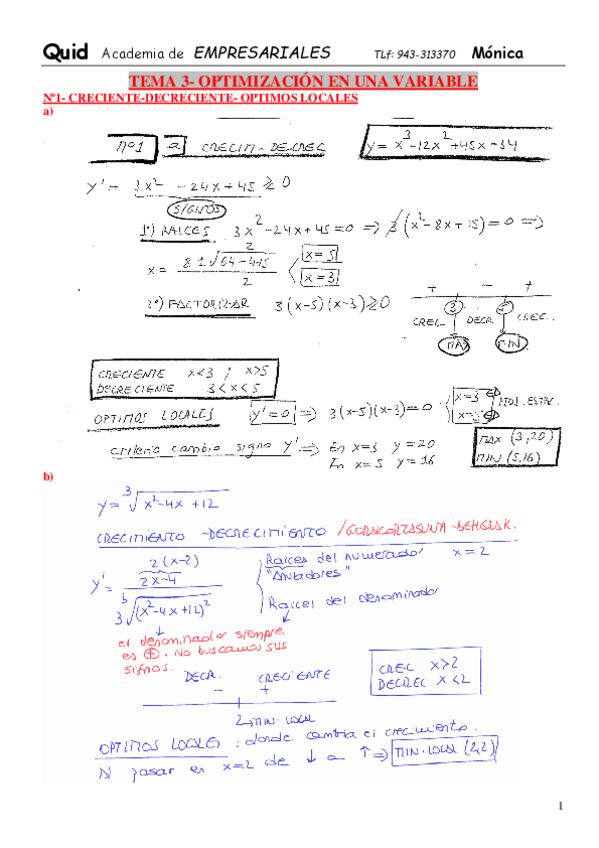 Quid Academia de EMPRESARIALES TLf: 943-313370 Mónica
TEMA 3- OPTIMIZACIÓN EN UNA VARIABLE
Nº1- CRECIENTE-DECRECIENTE- OPTIMOS LOCALES
a)
Nº1 a CRECIM - DECREC y = x³-12x²+45x-34
y' = 3x² - 24x + 45 ≥ 0
SIGNOS
1º) RAICES 3x² - 24x + 45 = 0 => 3(x² - 8x + 15) = 0 =>
x = 8 ± √64-4·15 / 2 x=5 x=3
2º) FACTORIZAR 3(x-5)(x-3) ≥ 0
+ - +
3 5
CREC DECR CREC..
MAX MIN
CRECIENTE x<3 ; x>5
DECRECIENTE 3<x<5
OPTIMOS LOCALES y'=0 => 3(x-5)(x-3)=0 x=3 x=5 PTOS. ESTAC.
criterio cambio signo y' => En x=3 y=20
En x=5 y=16
MAX (3,20)
MIN (5,16)
b)
y = ³√x²-4x+12
CRECIMIENTO - DECRECIMIENTO / GORAKORTASUNA - BEHERAK.
y' = 2(x-2) 2x-4 / 3 ³√(x²-4x+12)²
Raices del numerador x=2
"Anuladores"
Raices del denominador
el denominador siempre
es +. No buscamos sus
signos.
DECR. CRECIENTE
- +
2 MIN. LOCAL
CREC x>2
DECREC x<2
OPTIMOS LOCALES : donde cambia el crecimiento.
Al pasar en x=2 de ↓ a ↑ => MIN. LOCAL (2,2)
1